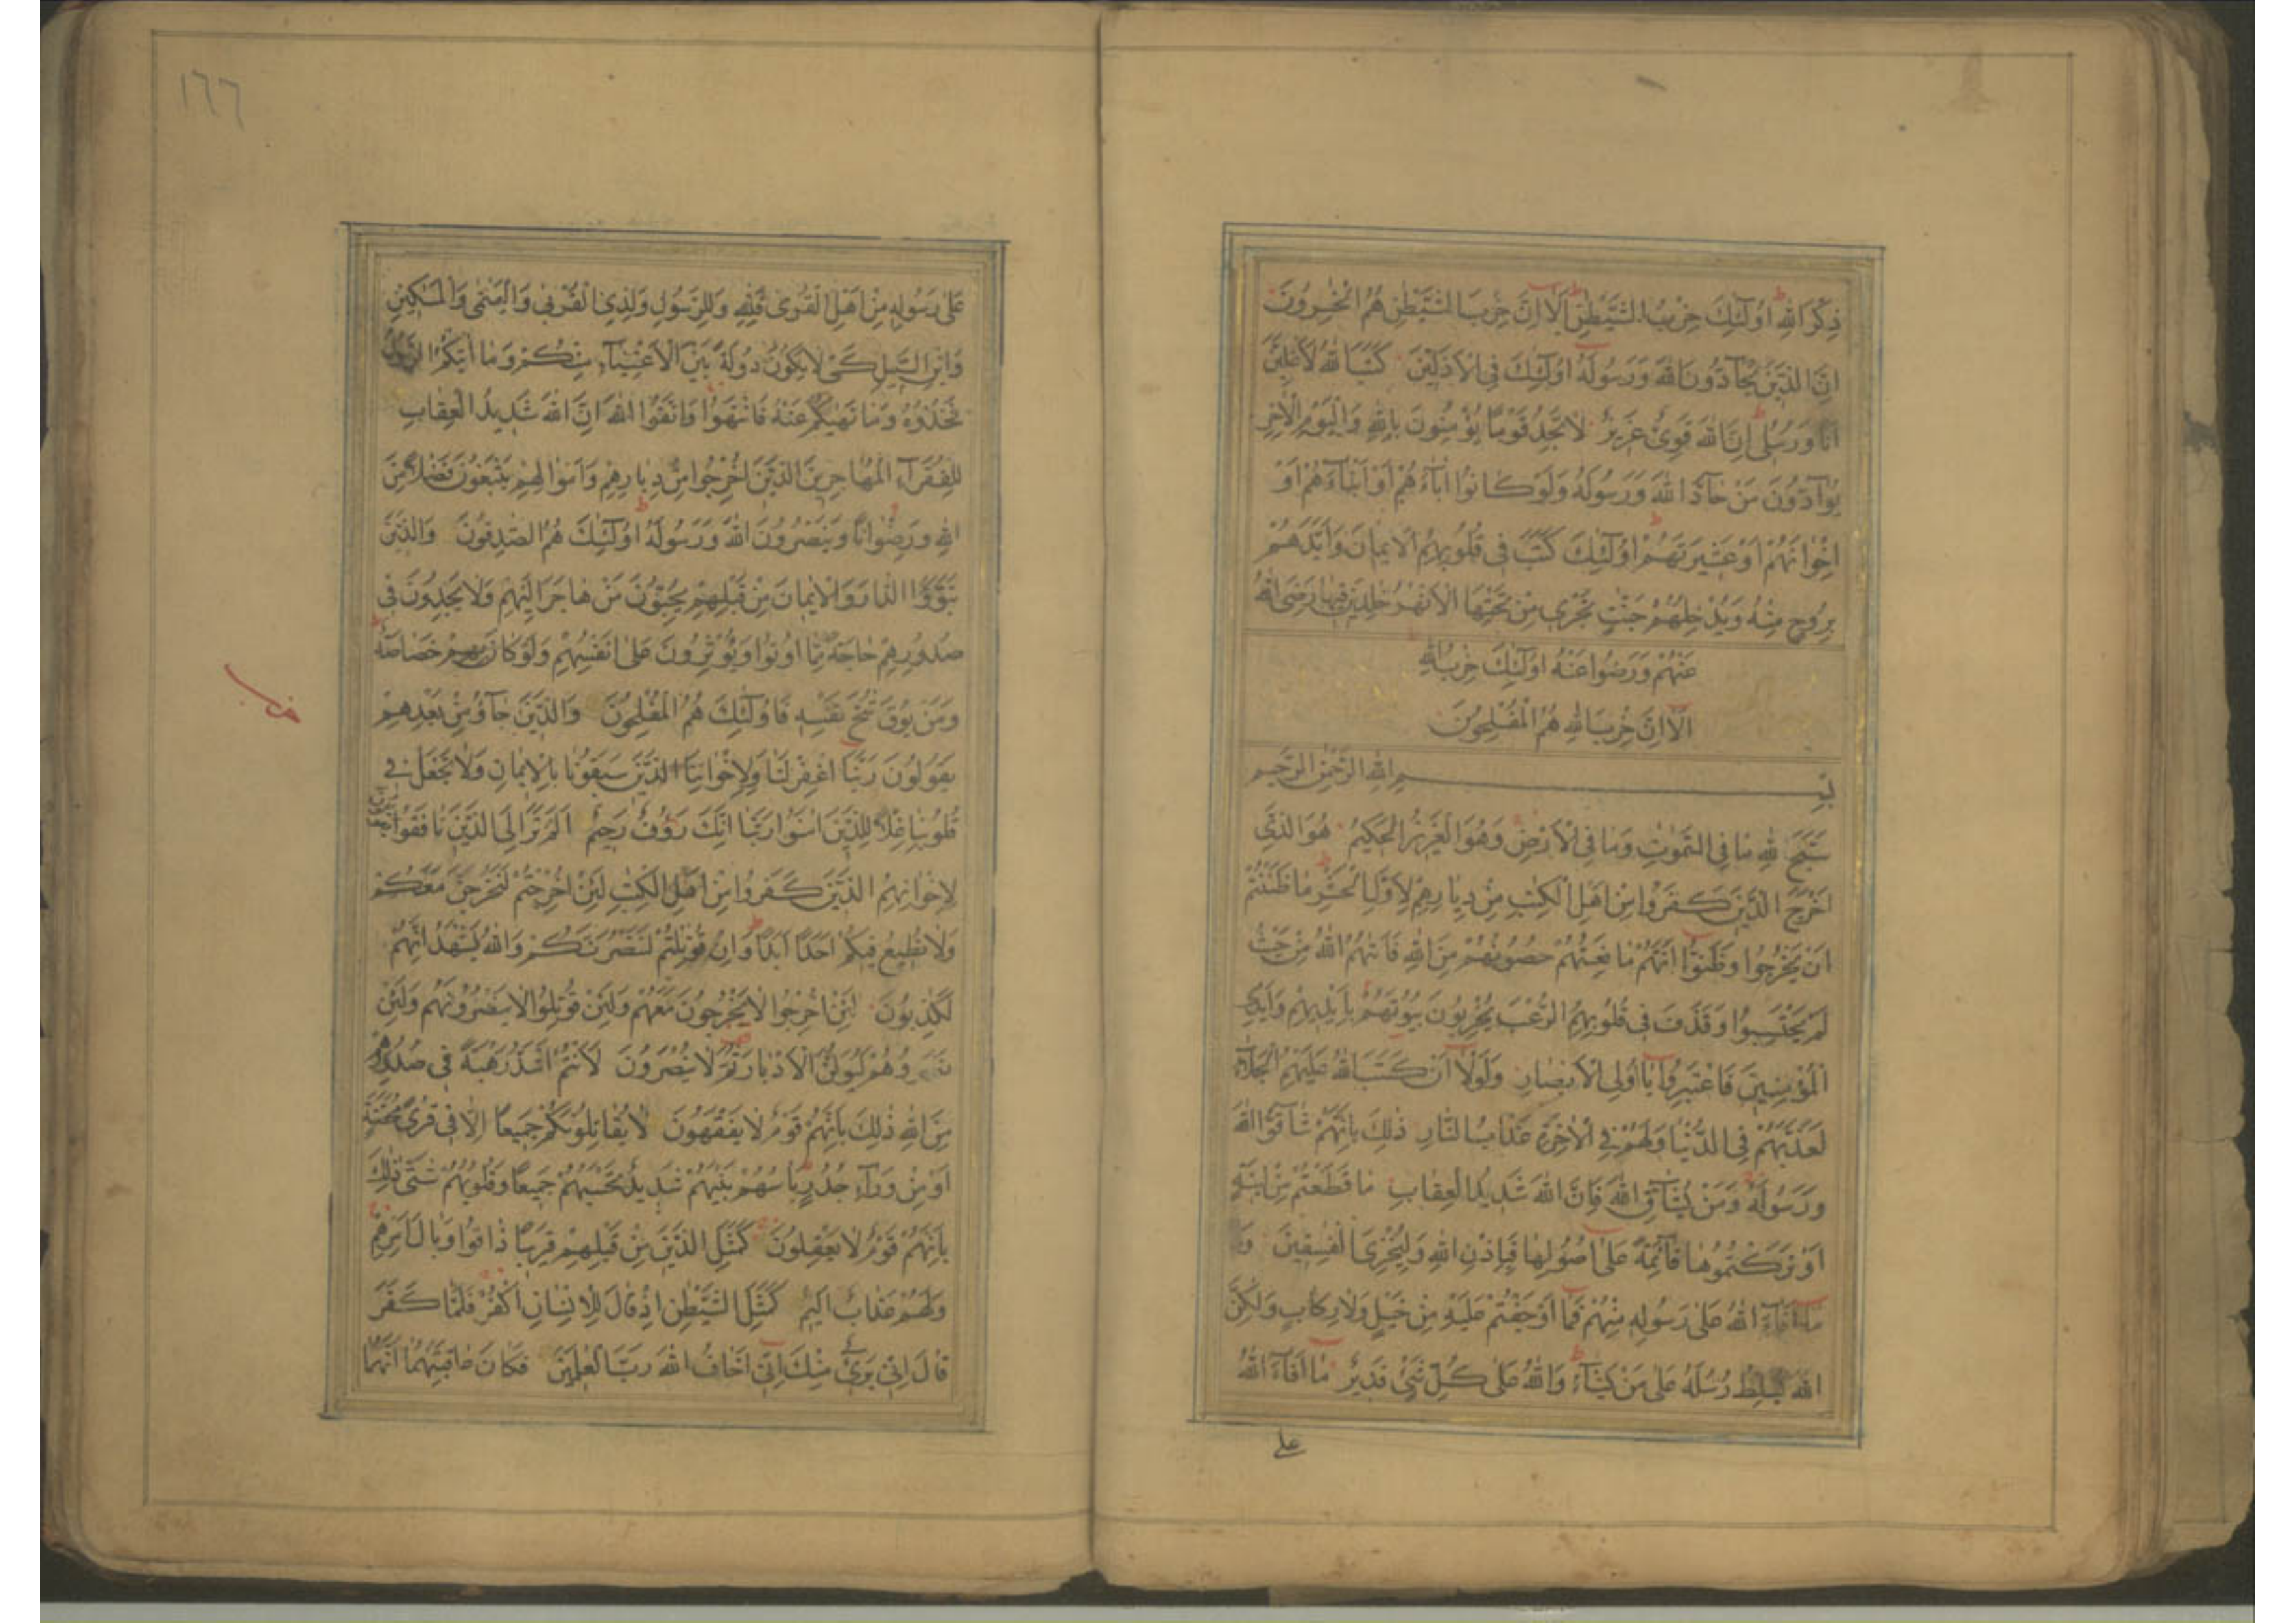 ذِكْرَ اللهِ اُولٰٓئِكَ حِزْبُ الشَّيْطٰنِ اَلَا اِنَّ حِزْبَ الشَّيْطٰنِ هُمُ الْخٰسِرُونَ
اِنَّ الَّذِيْنَ يُحَآدُّونَ اللهَ وَرَسُولَهُ اُولٰٓئِكَ فِى الْاَذَلِّيْنَ كَتَبَ اللهُ لَاَغْلِبَنَّ
اَنَا وَرُسُلِى اِنَّ اللهَ قَوِىٌّ عَزِيْزٌ لَا تَجِدُ قَوْمًا يُؤْمِنُونَ بِاللهِ وَالْيَوْمِ الْاٰخِرِ
يُوَآدُّونَ مَنْ حَآدَّ اللهَ وَرَسُولَهُ وَلَوْ كَانُوا اٰبَآءَهُمْ اَوْ اَبْنَآءَهُمْ اَوْ
اِخْوَانَهُمْ اَوْ عَشِيْرَتَهُمْ اُولٰٓئِكَ كَتَبَ فِى قُلُوبِهِمُ الْاِيْمَانَ وَاَيَّدَهُمْ
بِرُوحٍ مِنْهُ وَيُدْخِلُهُمْ جَنّٰتٍ تَجْرِى مِنْ تَحْتِهَا الْاَنْهٰرُ خٰلِدِيْنَ فِيْهَا رَضِىَ اللهُ
عَنْهُمْ وَرَضُوا عَنْهُ اُولٰٓئِكَ حِزْبُ اللهِ
اَلَا اِنَّ حِزْبَ اللهِ هُمُ الْمُفْلِحُونَ
بِسْمِ اللهِ الرَّحْمٰنِ الرَّحِيْمِ
سَبَّحَ لِلّٰهِ مَا فِى السَّمٰوٰتِ وَمَا فِى الْاَرْضِ وَهُوَ الْعَزِيْزُ الْحَكِيْمُ هُوَ الَّذِى
اَخْرَجَ الَّذِيْنَ كَفَرُوا مِنْ اَهْلِ الْكِتٰبِ مِنْ دِيَارِهِمْ لِاَوَّلِ الْحَشْرِ مَا ظَنَنْتُمْ
اَنْ يَخْرُجُوا وَظَنُّوا اَنَّهُمْ مَانِعَتُهُمْ حُصُونُهُمْ مِنَ اللهِ فَاَتٰهُمُ اللهُ مِنْ حَيْثُ
لَمْ يَحْتَسِبُوا وَقَذَفَ فِى قُلُوبِهِمُ الرُّعْبَ يُخْرِبُونَ بُيُوتَهُمْ بِاَيْدِيْهِمْ وَاَيْدِى
الْمُؤْمِنِيْنَ فَاعْتَبِرُوا يَا اُولِى الْاَبْصَارِ وَلَوْلَا اَنْ كَتَبَ اللهُ عَلَيْهِمُ الْجَلَآءَ
لَعَذَّبَهُمْ فِى الدُّنْيَا وَلَهُمْ فِى الْاٰخِرَةِ عَذَابُ النَّارِ ذٰلِكَ بِاَنَّهُمْ شَآقُّوا اللهَ
وَرَسُولَهُ وَمَنْ يُشَآقِّ اللهَ فَاِنَّ اللهَ شَدِيْدُ الْعِقَابِ مَا قَطَعْتُمْ مِنْ لِيْنَةٍ
اَوْ تَرَكْتُمُوهَا قَآئِمَةً عَلٰى اُصُولِهَا فَبِاِذْنِ اللهِ وَلِيُخْزِىَ الْفٰسِقِيْنَ وَ
مَا اَفَآءَ اللهُ عَلٰى رَسُولِهِ مِنْهُمْ فَمَا اَوْجَفْتُمْ عَلَيْهِ مِنْ خَيْلٍ وَلَا رِكَابٍ وَلٰكِنَّ
اللهَ يُسَلِّطُ رُسُلَهُ عَلٰى مَنْ يَشَآءُ وَاللهُ عَلٰى كُلِّ شَىْءٍ قَدِيْرٌ مَا اَفَآءَ اللهُ
على
١٦٦
عَلٰى رَسُولِهِ مِنْ اَهْلِ الْقُرٰى فَلِلّٰهِ وَلِلرَّسُولِ وَلِذِى الْقُرْبٰى وَالْيَتٰمٰى وَالْمَسٰكِيْنِ
وَابْنِ السَّبِيْلِ كَىْ لَا يَكُونَ دُولَةً بَيْنَ الْاَغْنِيَآءِ مِنْكُمْ وَمَا اٰتٰيكُمُ الرَّسُولُ
فَخُذُوهُ وَمَا نَهٰيكُمْ عَنْهُ فَانْتَهُوا وَاتَّقُوا اللهَ اِنَّ اللهَ شَدِيْدُ الْعِقَابِ
لِلْفُقَرَآءِ الْمُهَاجِرِيْنَ الَّذِيْنَ اُخْرِجُوا مِنْ دِيَارِهِمْ وَاَمْوَالِهِمْ يَبْتَغُونَ فَضْلًا مِنَ
اللهِ وَرِضْوَانًا وَيَنْصُرُونَ اللهَ وَرَسُولَهُ اُولٰٓئِكَ هُمُ الصّٰدِقُونَ وَالَّذِيْنَ
تَبَوَّؤُا الدَّارَ وَالْاِيْمَانَ مِنْ قَبْلِهِمْ يُحِبُّونَ مَنْ هَاجَرَ اِلَيْهِمْ وَلَا يَجِدُونَ فِى
صُدُورِهِمْ حَاجَةً مِمَّا اُوتُوا وَيُؤْثِرُونَ عَلٰى اَنْفُسِهِمْ وَلَوْ كَانَ بِهِمْ خَصَاصَةٌ
وَمَنْ يُوقَ شُحَّ نَفْسِهِ فَاُولٰٓئِكَ هُمُ الْمُفْلِحُونَ وَالَّذِيْنَ جَآؤُ مِنْ بَعْدِهِمْ
يَقُولُونَ رَبَّنَا اغْفِرْ لَنَا وَلِاِخْوَانِنَا الَّذِيْنَ سَبَقُونَا بِالْاِيْمَانِ وَلَا تَجْعَلْ فِى
قُلُوبِنَا غِلًّا لِلَّذِيْنَ اٰمَنُوا رَبَّنَا اِنَّكَ رَؤُفٌ رَحِيْمٌ اَلَمْ تَرَ اِلَى الَّذِيْنَ نَافَقُوا يَقُولُونَ
لِاِخْوَانِهِمُ الَّذِيْنَ كَفَرُوا مِنْ اَهْلِ الْكِتٰبِ لَئِنْ اُخْرِجْتُمْ لَنَخْرُجَنَّ مَعَكُمْ
وَلَا نُطِيْعُ فِيْكُمْ اَحَدًا اَبَدًا وَاِنْ قُوتِلْتُمْ لَنَنْصُرَنَّكُمْ وَاللهُ يَشْهَدُ اِنَّهُمْ
لَكٰذِبُونَ لَئِنْ اُخْرِجُوا لَا يَخْرُجُونَ مَعَهُمْ وَلَئِنْ قُوتِلُوا لَا يَنْصُرُونَهُمْ وَلَئِنْ
نَصَرُوهُمْ لَيُوَلُّنَّ الْاَدْبَارَ ثُمَّ لَا يُنْصَرُونَ لَاَنْتُمْ اَشَدُّ رَهْبَةً فِى صُدُورِهِمْ
مِنَ اللهِ ذٰلِكَ بِاَنَّهُمْ قَوْمٌ لَا يَفْقَهُونَ لَا يُقَاتِلُونَكُمْ جَمِيْعًا اِلَّا فِى قُرًى مُحَصَّنَةٍ
اَوْ مِنْ وَرَآءِ جُدُرٍ بَاْسُهُمْ بَيْنَهُمْ شَدِيْدٌ تَحْسَبُهُمْ جَمِيْعًا وَقُلُوبُهُمْ شَتّٰى ذٰلِكَ
بِاَنَّهُمْ قَوْمٌ لَا يَعْقِلُونَ كَمَثَلِ الَّذِيْنَ مِنْ قَبْلِهِمْ قَرِيْبًا ذَاقُوا وَبَالَ اَمْرِهِمْ
وَلَهُمْ عَذَابٌ اَلِيْمٌ كَمَثَلِ الشَّيْطٰنِ اِذْ قَالَ لِلْاِنْسَانِ اكْفُرْ فَلَمَّا كَفَرَ
قَالَ اِنِّى بَرِىْءٌ مِنْكَ اِنِّى اَخَافُ اللهَ رَبَّ الْعٰلَمِيْنَ فَكَانَ عَاقِبَتَهُمَا اَنَّهُمَا